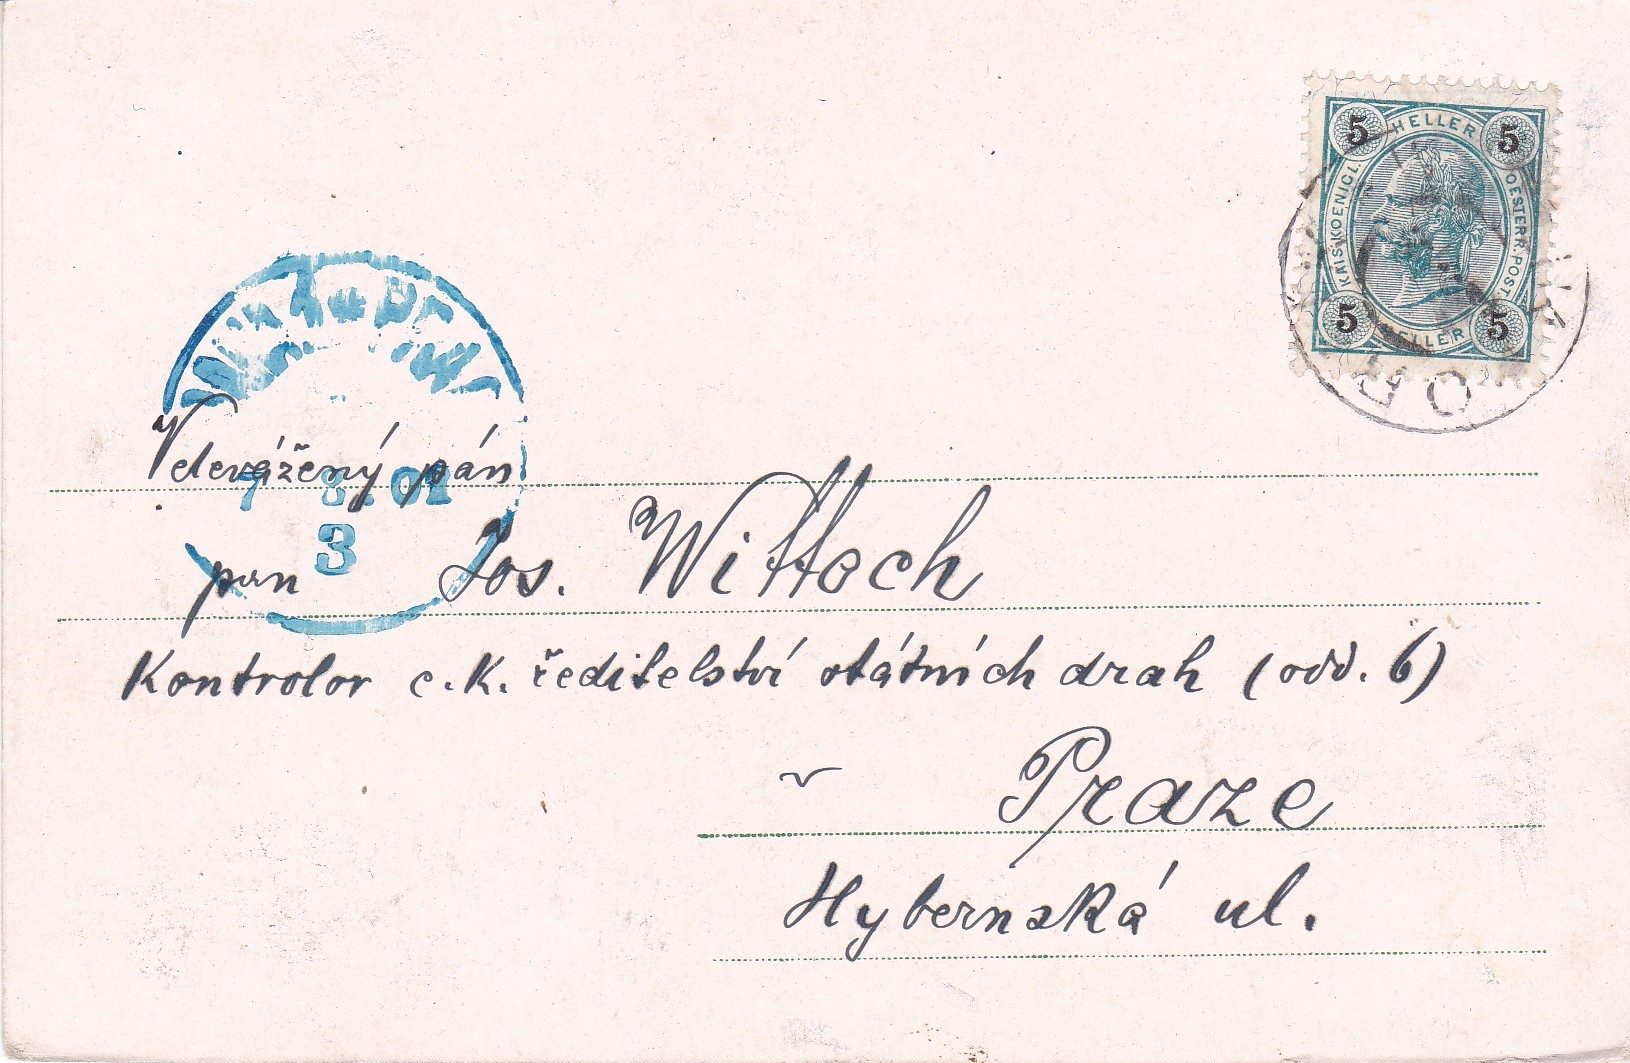 HELLER
5 5
KAIS. KOENIGL.
OESTERR. POST
5 5
HELLER
Veleváženy pán
7 8. 01
3
pan Jos. Wittoch
Kontrolor c. K. ředitelství státních drah (odd. 6)
v Praze
Hybernská ul.